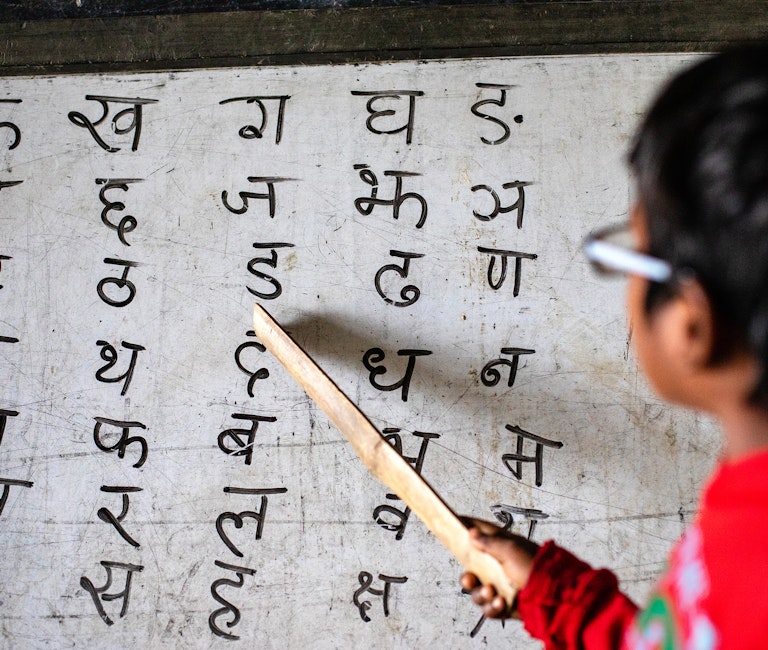 ख ग घ ङ
छ ज झ ञ
ठ ड ढ ण
थ द ध न
फ ब भ म
र ल व
स ह क्ष